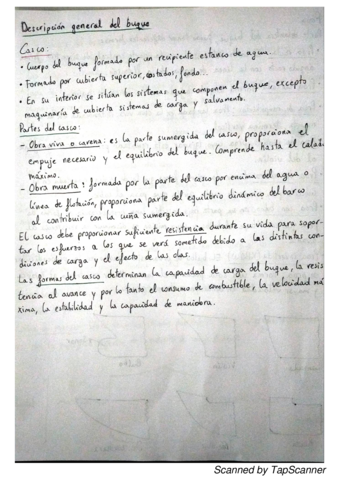 Descripción general del buque
Casco:
• Cuerpo del buque formado por un recipiente estanco de agua.
• Formado por cubierta superior, costados, fondo...
• En su interior se sitúan los sistemas que componen el buque, excepto
maquinaría de cubierta sistemas de carga y salvamento.
Partes del casco:
- Obra viva o carena: es la parte sumergida del casco, proporciona el
empuje necesario y el equilibrio del buque. Comprende hasta el calado
máximo.
- Obra muerta: formada por la parte del casco por encima del agua o
línea de flotación, proporciona parte del equilibrio dinámico del barco
al contribuir con la cuña sumergida.
El casco debe proporcionar suficiente resistencia durante su vida para sopor-
tar los esfuerzos a los que se verá sometido debido a las distintas con-
diciones de carga y el efecto de las olas.
Las formas del casco determinan la capacidad de carga del buque, la resis
tencia al avance y por lo tanto el consumo de combustible, la velocidad má
xima, la estabilidad y la capacidad de maniobra.
Scanned by TapScanner